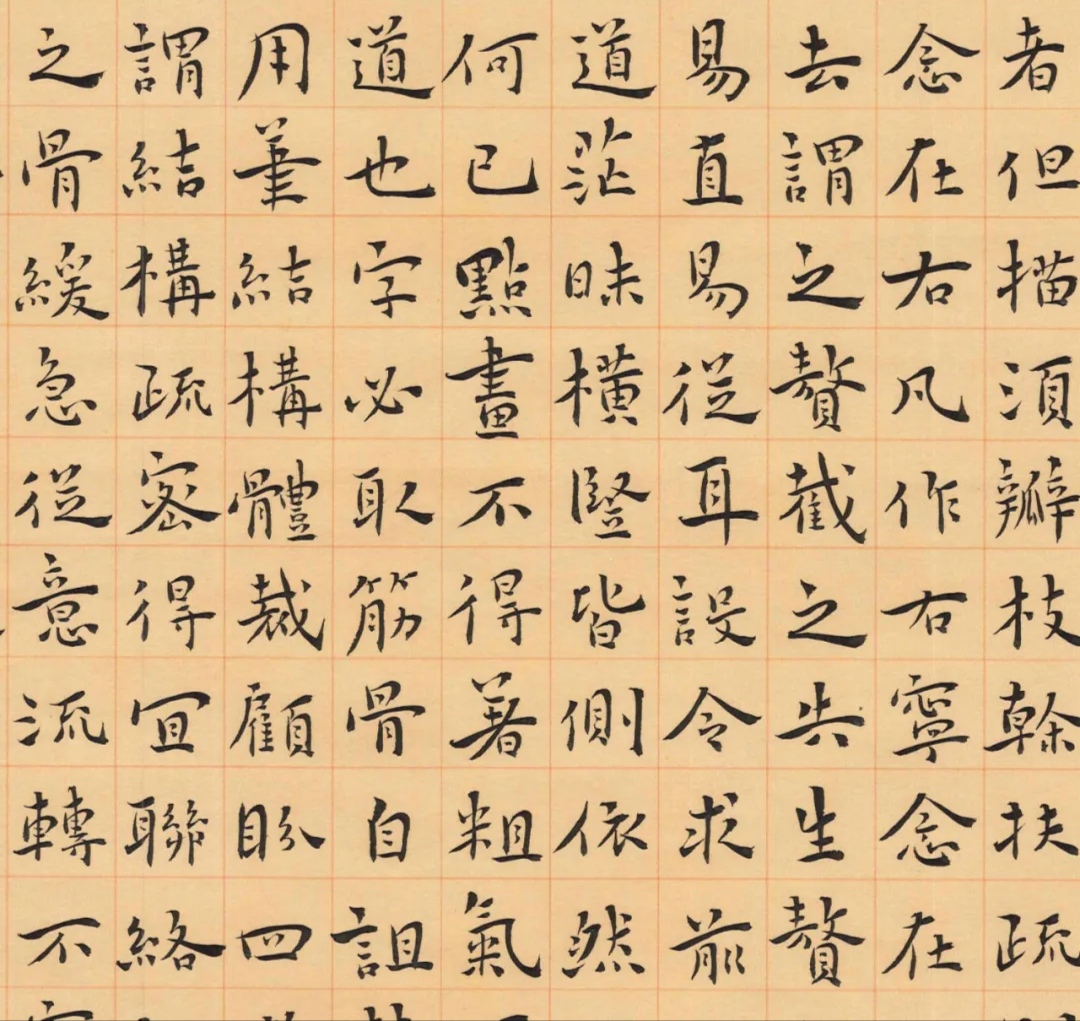 者但描須辦枝幹扶疏
念在右凡作右寧念在
去謂之贅截之告生贅
易直易從耳設令求前
道茫昧橫豎皆側依然
何已點畫不得著粗氣
道也字必取筋骨自詛
用筆結構體裁顧盼四
謂結構疏密得宜聯絡
之骨緩急從意流轉不